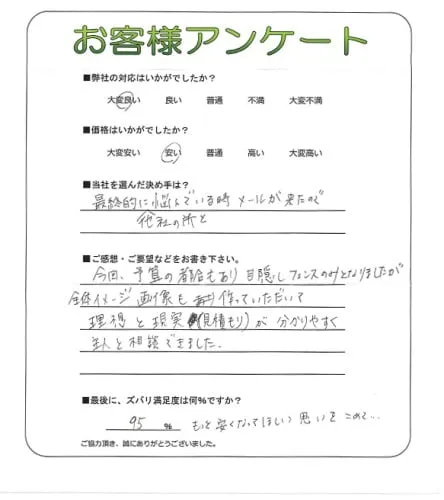 お客様アンケート
■弊社の対応はいかがでしたか?
大変良い 良い 普通 不満 大変不満
■価格はいかがでしたか?
大変安い 安い 普通 高い 大変高い
■当社を選んだ決め手は?
最終的に悩んでいる時メールが来たので
他社の所と
■ご感想・ご要望などをお書き下さい。
今回、予算の都合もあり目隠しフェンスのみとなりましたが
全体イメージ画像も作っていただいて
理想と現実(見積もり)が分かりやすく
主人と相談できました。
■最後に、ズバリ満足度は何%ですか?
95 % もっと安くなってほしい思いをこめて…
ご協力頂き、誠にありがとうございました。